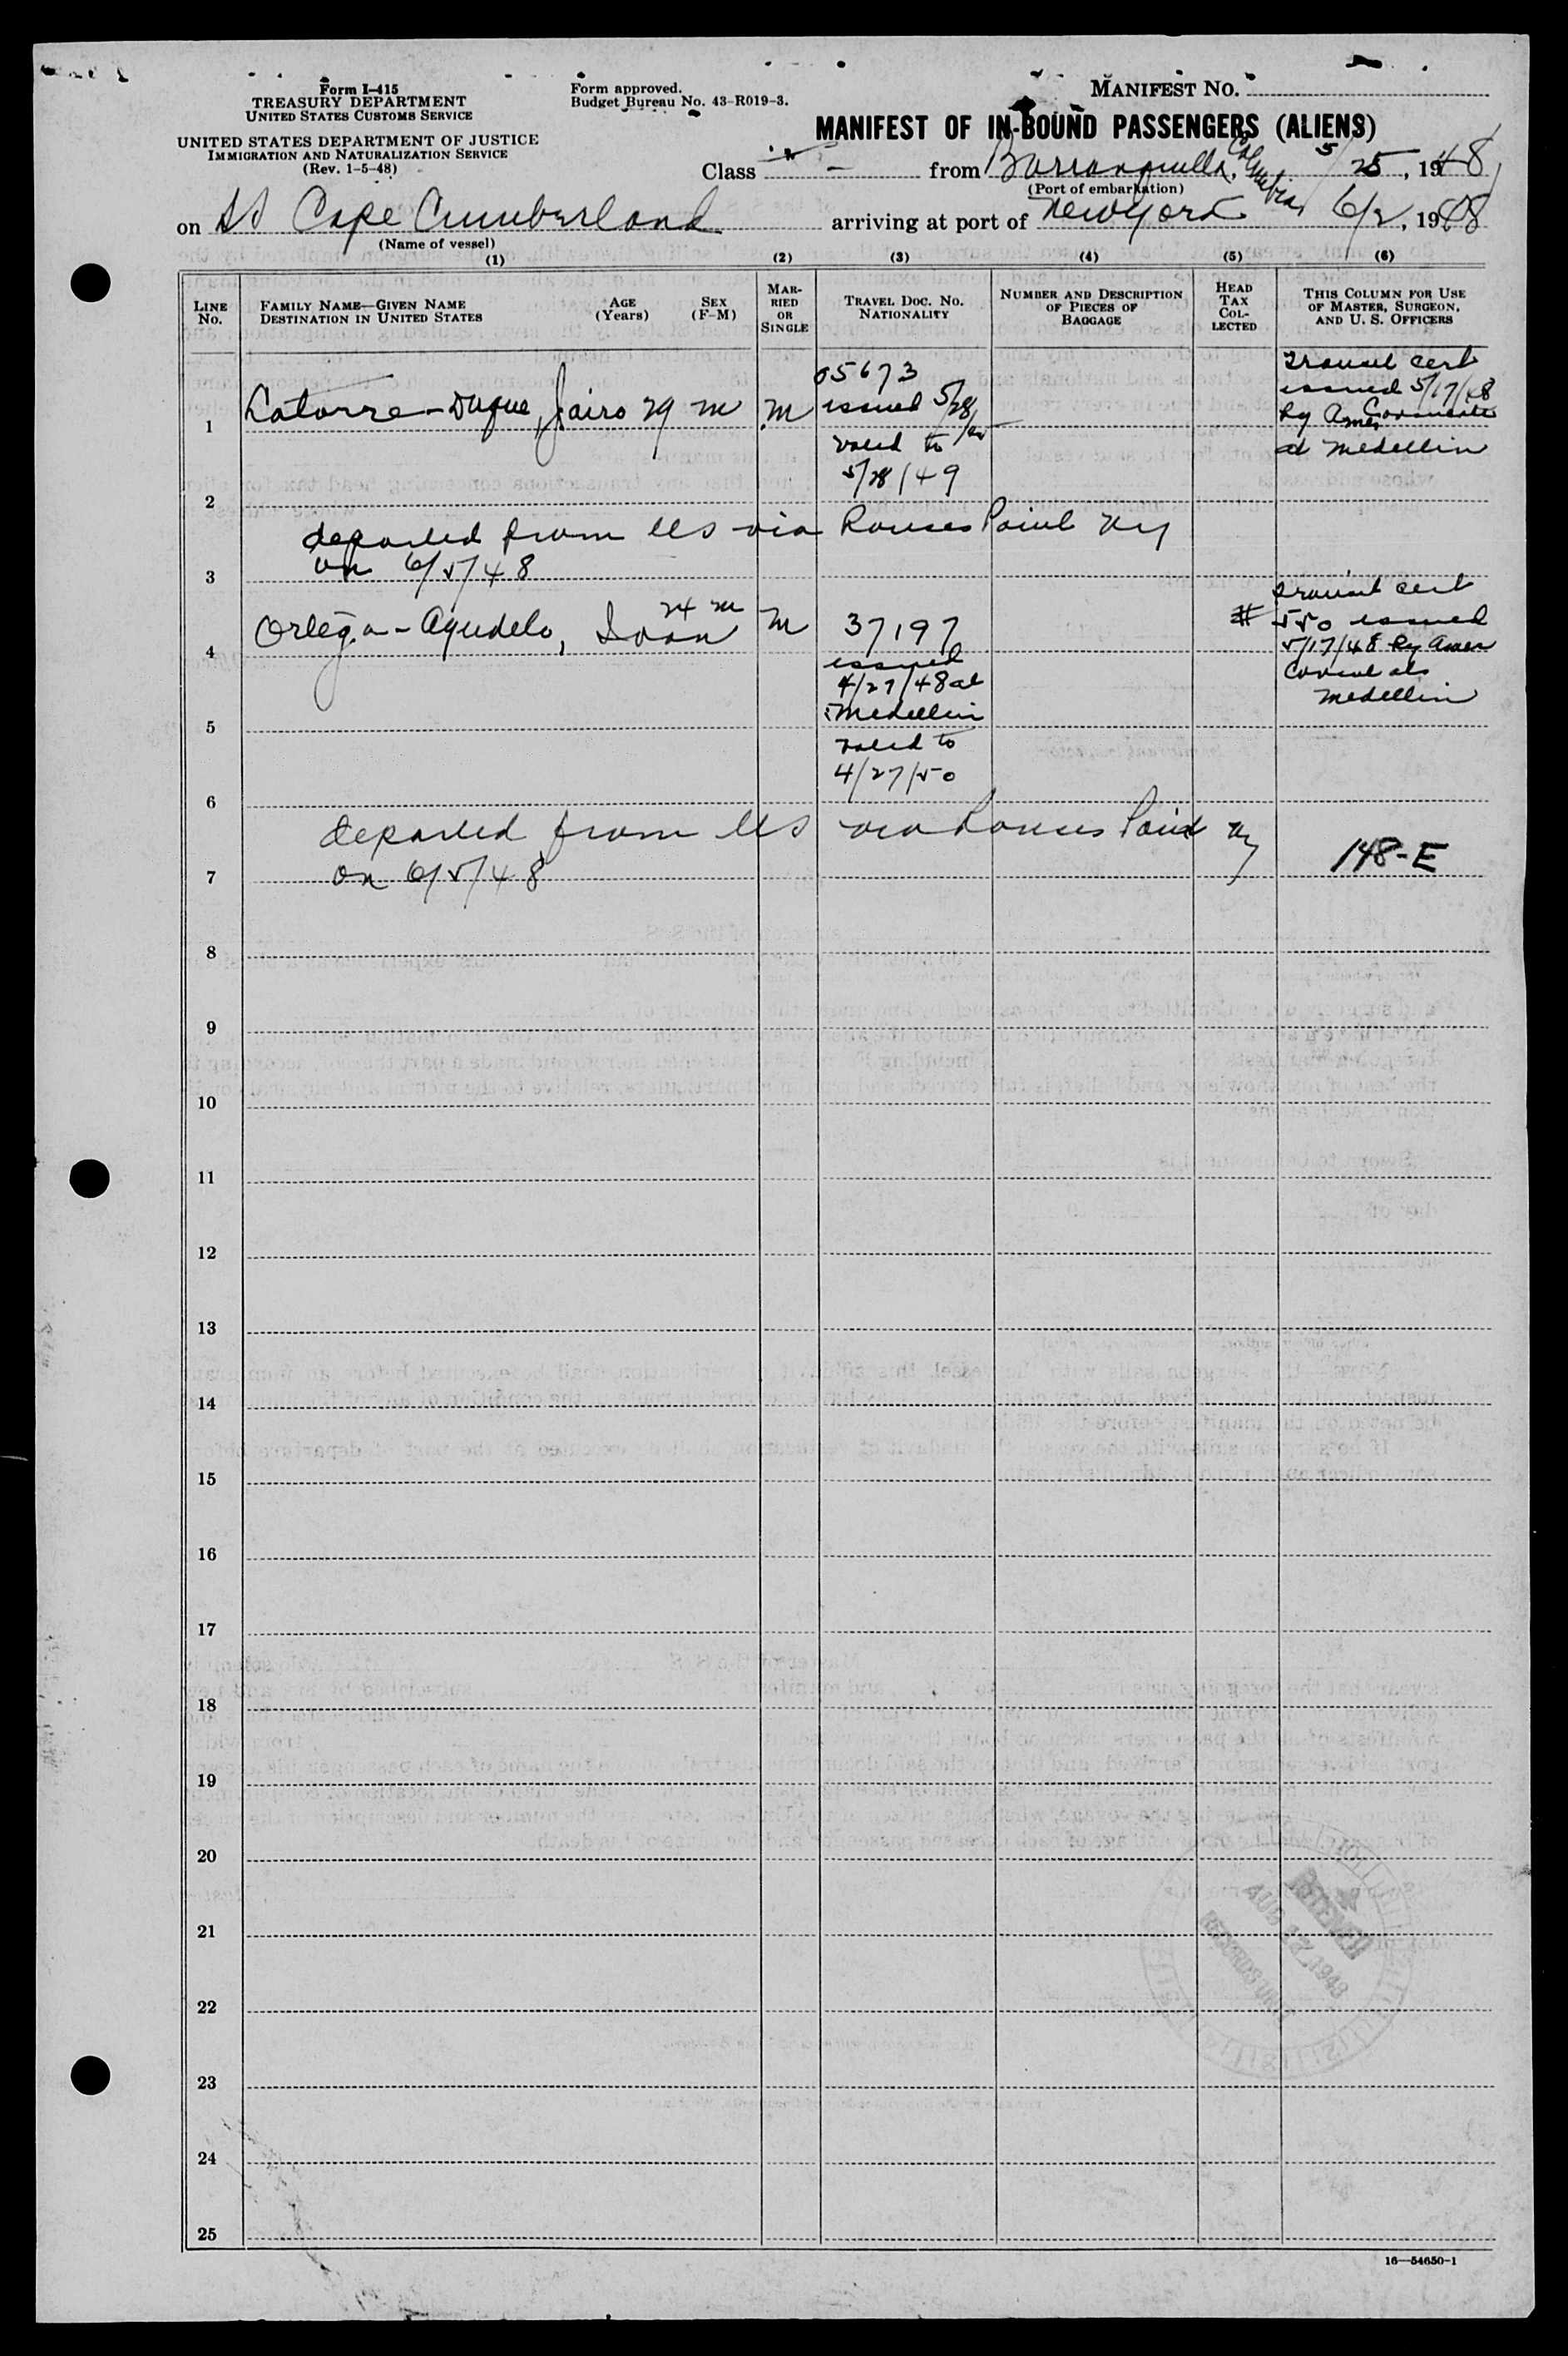 Form I-415
TREASURY DEPARTMENT
UNITED STATES CUSTOMS SERVICE
UNITED STATES DEPARTMENT OF JUSTICE
IMMIGRATION AND NATURALIZATION SERVICE
(Rev. 1-5-48)
Form approved.
Budget Bureau No. 43-R019-3.
MANIFEST NO.
MANIFEST OF IN-BOUND PASSENGERS (ALIENS)
Class - from Barranquilla, Colombia, 5/25, 1948
(Port of embarkation)
on SS Cape Cumberland arriving at port of New York 6/2, 1948
(Name of vessel)
(1) (2) (3) (4) (5) (6)
LINE No.
FAMILY NAME—GIVEN NAME
DESTINATION IN UNITED STATES
AGE (Years)
SEX (F-M)
MARRIED OR SINGLE
TRAVEL DOC. NO. NATIONALITY
NUMBER AND DESCRIPTION OF PIECES OF BAGGAGE
HEAD TAX COLLECTED
THIS COLUMN FOR USE OF MASTER, SURGEON, AND U. S. OFFICERS
1 Latorre-Duque, Jairo 29 m m
05673
issued 5/28/
valid to
5/28/49
transit cert
issued 5/17/48
by Amer Consulate
at Medellin
2
departed from US via Rouses Point NY
3 on 6/5/48
4 Ortega-Agudelo, Ivan 24 m m
37197
issued
4/27/48 at
Medellin
valid to
4/27/50
transit cert
# 550 issued
5/17/48 by Amer
Consul at
Medellin
5
6
departed from US via Rouses Point NY
7 on 6/5/48
148-E
8
9
10
11
12
13
14
15
16
17
18
19
20
21
22
23
24
25
RECEIVED
AUG 12 1948
RECORDS UNIT
16—54650-1